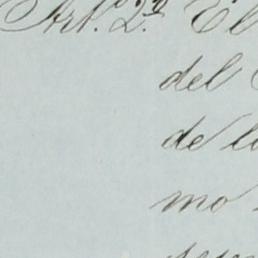 Art.º 2.º El
del
de lo
mo